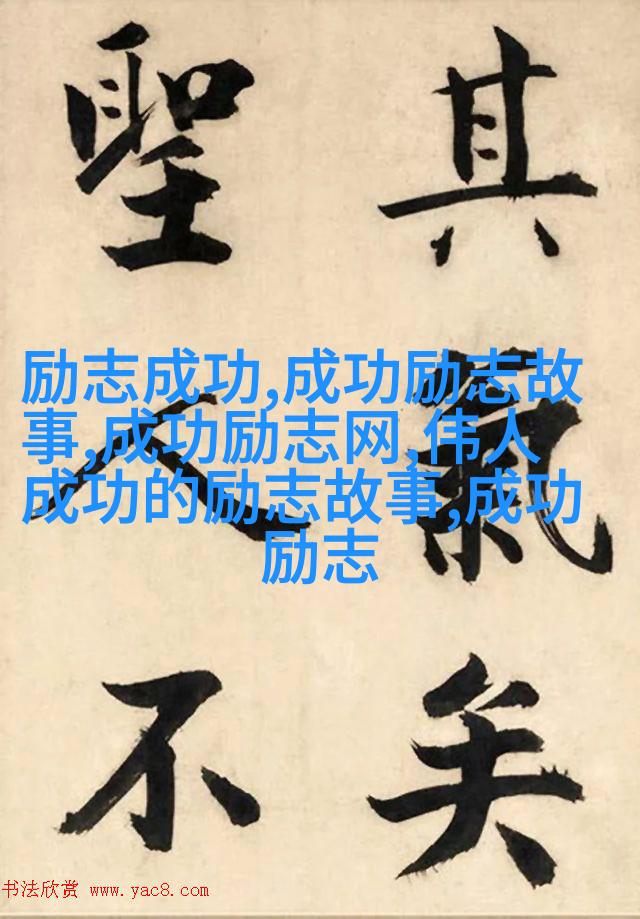 其氣矣
聖人不
励志成功,成功励志故
事,成功励志网,伟人
成功的励志故事,成功
励志
书法欣赏 www.yac8.com